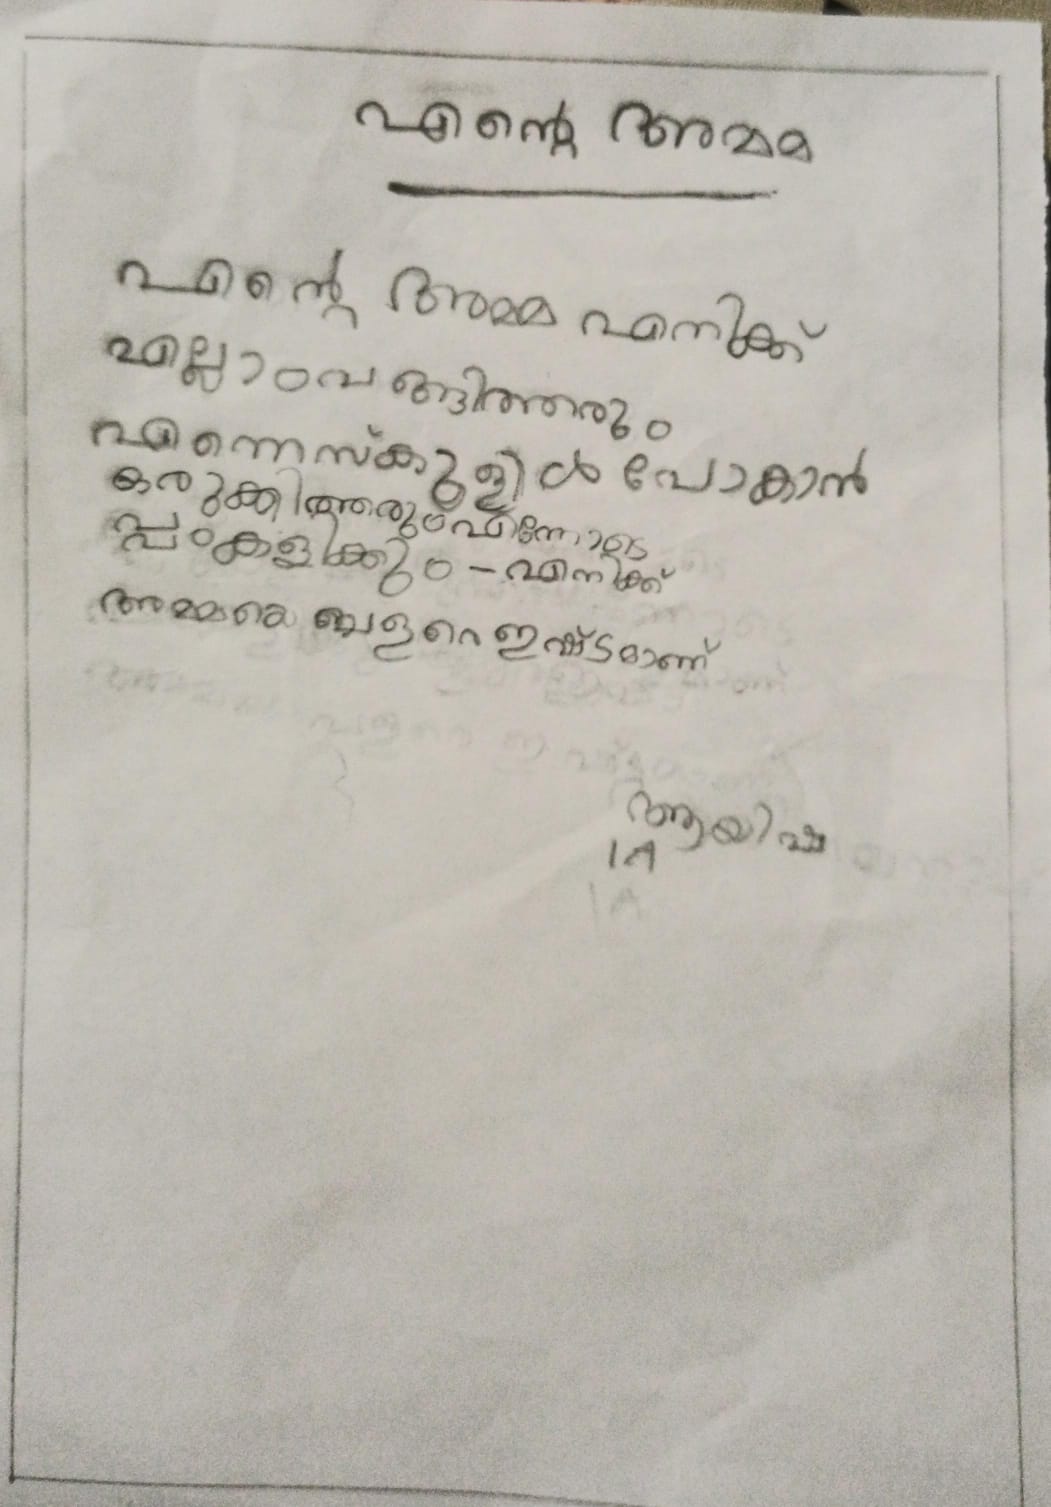 എന്റെ അമ്മ
എന്റെ അമ്മ എനിക്ക്
എല്ലാംവങ്ങിത്തരും
എന്നെസ്കുളിൽ പോകാൻ
ഒരുക്കിത്തരുംഎന്നോടെ
പ്പംകളിക്കും - എനിക്ക്
അമ്മയെ വളറെഇഷ്ടമാണ്
ആയിഷ
1A
1A